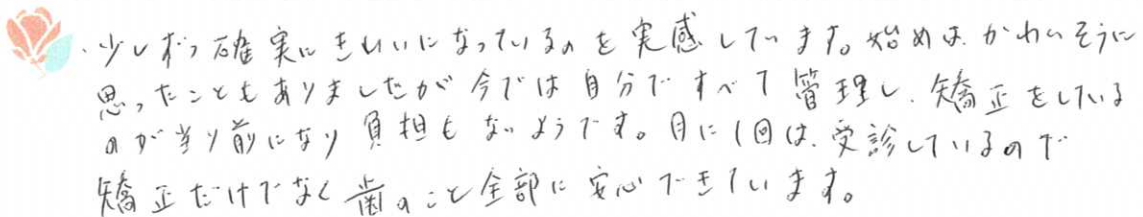 ・少しずつ確実にきれいになっているのを実感しています。始めは、かわいそうに
思ったこともありましたが今では自分ですべて管理し、矯正をしている
のが当り前になり負担もないようです。月に1回は、受診しているので
矯正だけでなく歯のこと全部に安心できています。